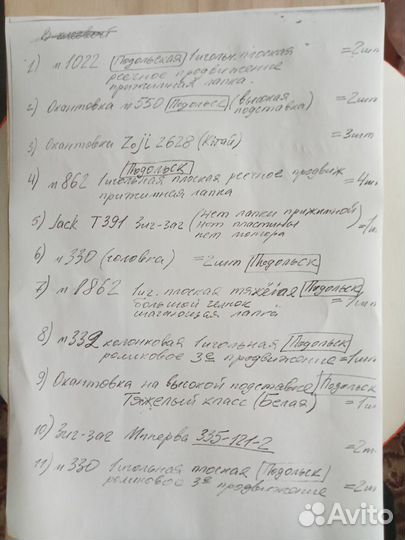 1) м 1022 Подольская 1 игольн. плоская =2шт
реечное продвижение
прижимная лапка.
2) Окантовка м 550 Подольск (высокая подставка) =2шт
3) Окантовки Zoji 2628 (Китай) =3шт
Подольск
4) м 862 1 игольная плоская реечное продвиж =4ш
прижимная лапка
5) Jack T391 Зиг-заг (нет лапки прижимной =1ш
нет пластины
нет мотора)
6) м 330 (головка) =2шт Подольск
7) м 1862 1 иг. плоская тяжёлая Подольск
большой челнок =1шт
шагающая лапка
8) м 332 колонковая 1 игольная Подольск
роликовое 3е продвижение =1шт
9) Окантовка на высокой подставке Подольск
Тяжелый класс (Белая) =1ш
10) Зиг-заг Минерва 335-121-2 =2ш
11) м 330 1 игольная плоская Подольск
роликовое 3е продвижение =2шт
Avito